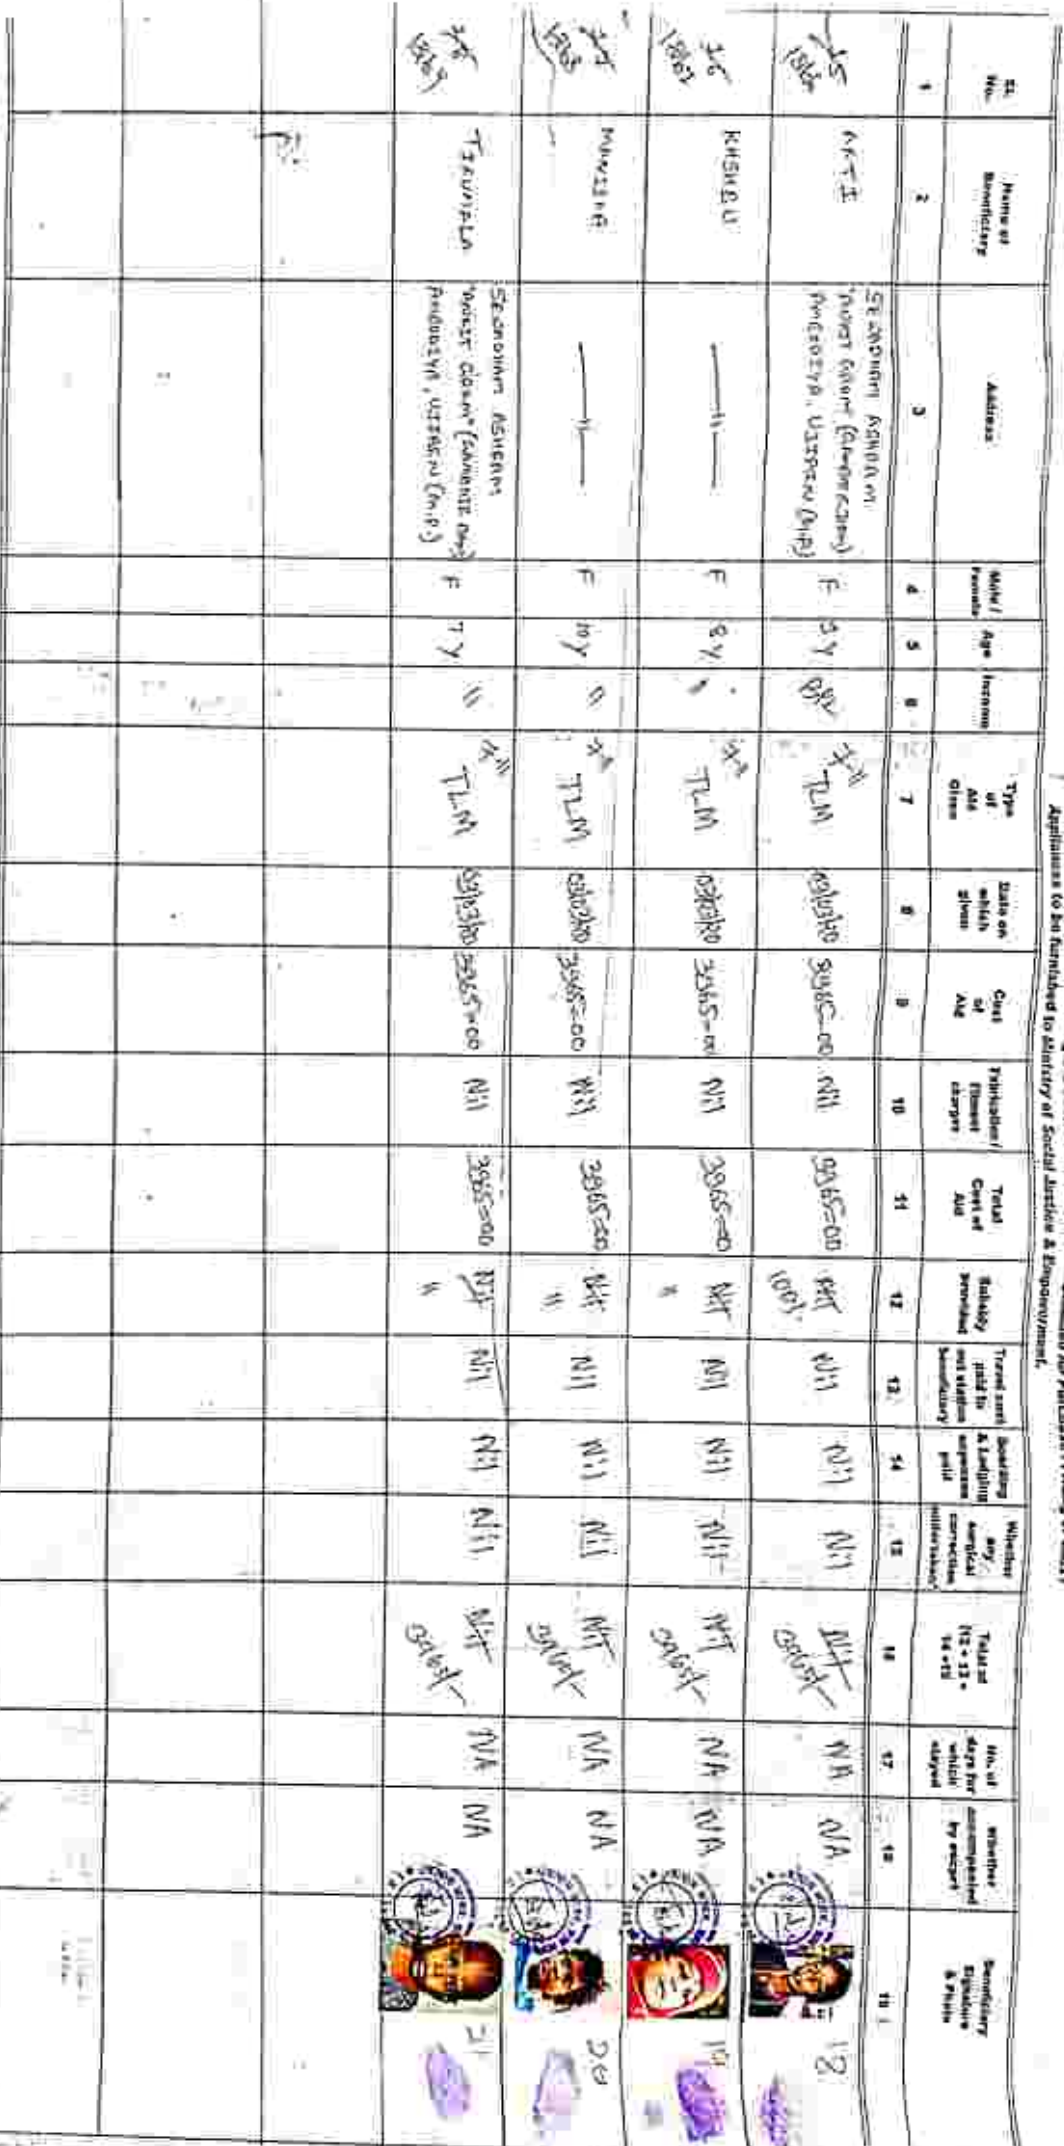 Appliances to be furnished to Ministry of Social Justice & Empowerment.
Sl. No.
Name of Beneficiary
Address
Male / Female
Age
Income
Type of Aid Given
Date on which given
Cost of Aid
Fabrication / Fitment charges
Total Cost of Aid
Subsidy provided
Travel cost paid to out station beneficiary
Boarding & Lodging expenses paid
Whether any surgical correction undertaken
Total of (12 + 13 + 14 + 15
No. of days for which stayed
Whether accompanied by escort
Beneficiary Signature & Photo
1 2 3 4 5 6 7 8 9 10 11 12 13 14 15 16 17 18 19
ARTI
SEWADHAM ASHRAM
AMBODIYA, UJJAIN (M.P)
F 9 Y BPL TLM 03/03/20 3965=00 Nil 3965=00 Nil 100% Nil Nil Nil Nil 3965/- NA NA 18
KHSHBU — " — F 8 Y " TLM 03/03/20 3965=00 Nil 3965=00 Nil " Nil Nil Nil Nil 3965/- NA NA 19
MANISHA — " — F 10 Y " TLM 03/03/20 3965=00 Nil 3965=00 Nil " Nil Nil Nil Nil 3965/- NA NA 20
TIRUMALA
SEWADHAM ASHRAM
AMBODIYA, UJJAEN (M.P)
F 7 Y " TLM 03/03/20 3965=00 Nil 3965=00 Nil " Nil Nil Nil Nil 3965/- NA NA 21